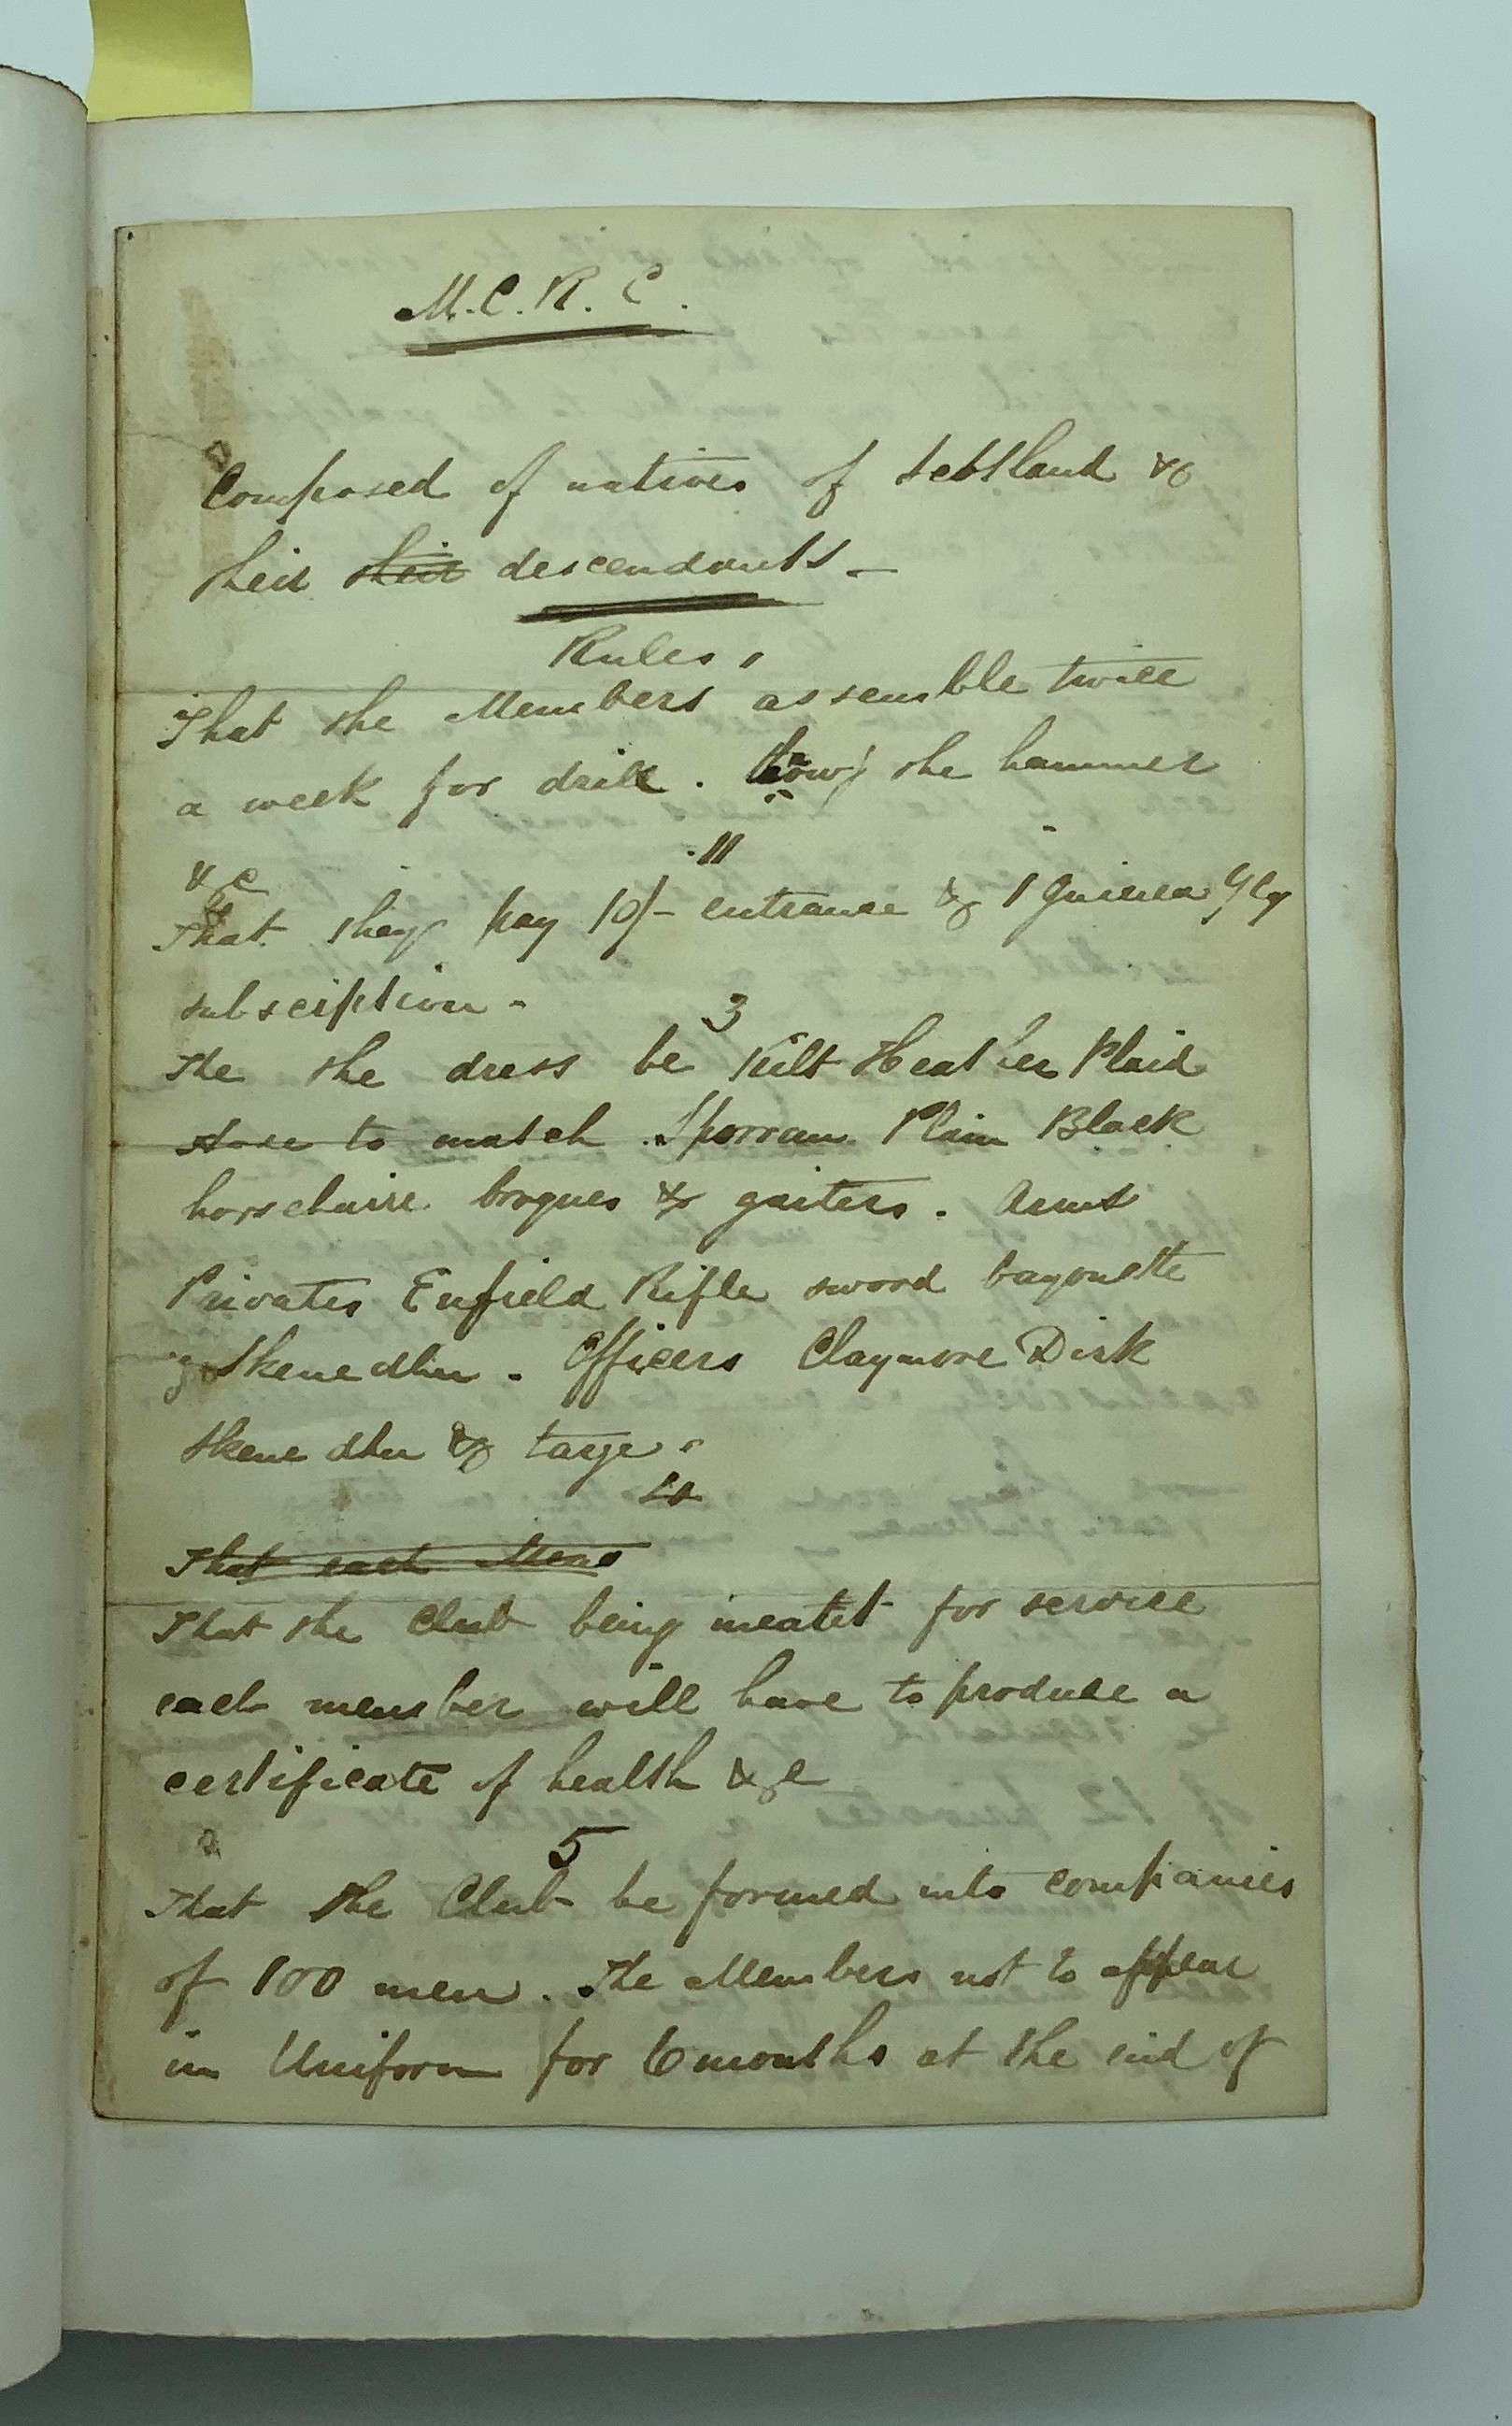 M.C.R.C.
Composed of natives of Scotland &
their their descendants —
Rules.
That the Members assemble twice
a week for drill. the hammer
11
&c
That they pay 10/- entrance & 1 Guinea Yly
subsciption -
3
The the dress be Kilt Heather Plaid
Hose to match. Sporran Plain Black
horsehaire brogues & gaiters. Arms
Privates Enfield Rifle sword bayonette
& Skene dhu. Officers Claymore Dirk
Skene dhu & targe.
4
That each Mem
That the Club being meatet for service
each member will have to produce a
certificate of health &c
5
That the Club be formed into companies
of 100 men. The Members not to appear
in Uniform for 6 months at the end of